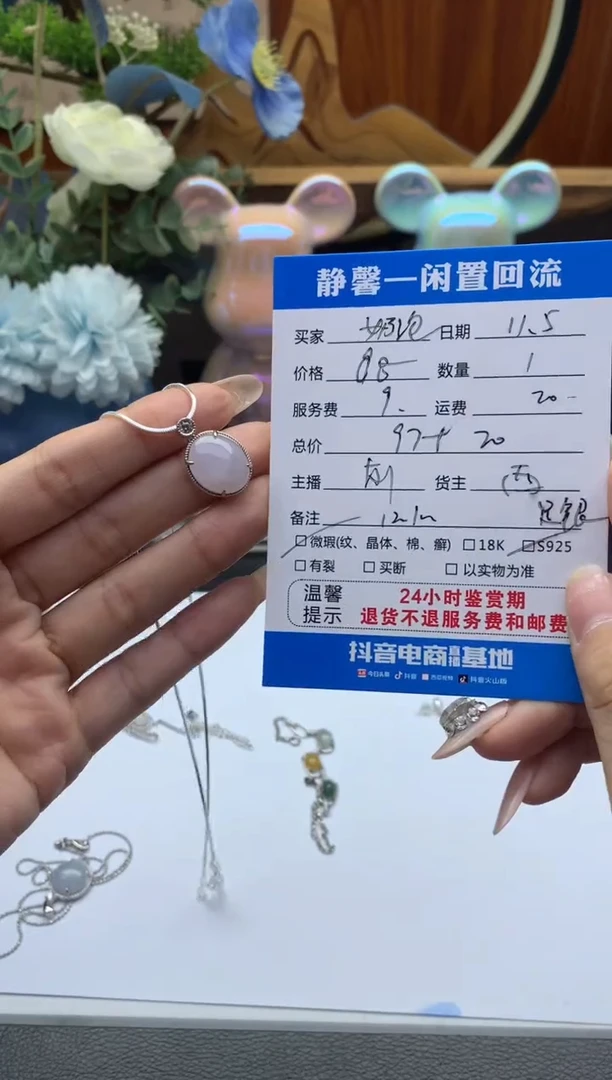 静馨—闲置回流
买家 日期 11.5
价格 88 数量 1
服务费 9. 运费 20-
总价 97+20
主播 货主
备注 足银
□微瑕(纹、晶体、棉、癣) □18K □S925
□有裂 □买断 □以实物为准
温馨提示 24小时鉴赏期
退货不退服务费和邮费
抖音电商直播基地
今日头条 抖音 西瓜视频 抖音火山版